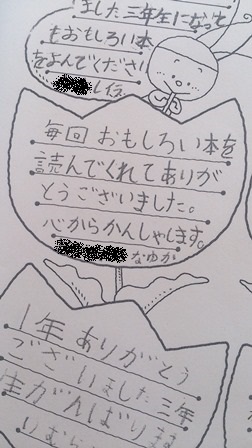 ました三年生になって
もおもしろい本
をよんでくださ
い
毎回 おもしろい本を
読んでくれてありが
とうございました。
心からかんしゃします。
なゆか
1年 ありがとう
ございました三年
生がんばりま